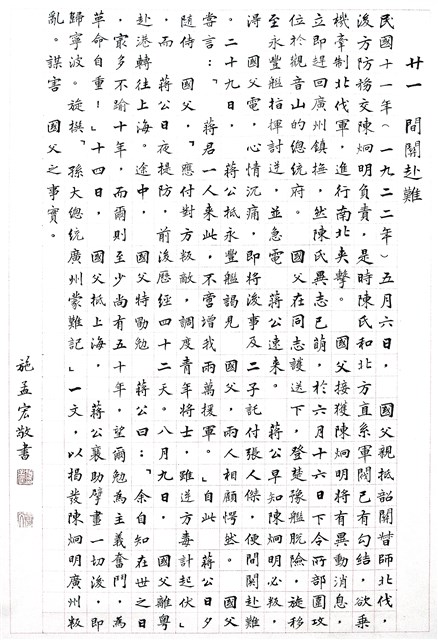 廿一　間關赴難
民國十一年(一九二二年)五月六日，　國父視抵韶關督師北伐，
後方防務交陳炯明負責，是時陳氏和北方直系軍閥已有勾結，欲乘
機牽制北伐軍，進行南北夾擊。　國父接獲陳炯明將有異動消息，
立即趕回廣州鎮撫，然陳氏異志已萌，於六月十六日下令所部圍攻
位於觀音山的總統府。　國父在同志護送下，登楚豫艦脫險，旋移
至永豐艦指揮討逆，並急電　蔣公速來。　蔣公早知陳炯明必叛，
得　國父電，心情沉痛，即將後事及二子託付張人傑，便間關赴難
。二十九日，　蔣公抵永豐艦謁見　國父，兩人相顧愕然。　國父
嘗言：「　蔣君一人來此，不啻增我兩萬援軍。」自此　蔣公日夕
隨侍　國父，「應付對方叛敵，調度青年將士，雖逆方毒計起伏」
，而　蔣公日夜提防，前後歷經四十二天。八月九日，　國父離粵
赴港轉往上海。途中，　國父特勖勉　蔣公曰：「余自知在世之日
，最多不踰十年，而爾則至少尚有五十年，望爾勉為主義奮鬥，為
革命自重！」十四日，　國父抵上海，　蔣公襄助擘畫一切後，即
歸寧波。旋撰「孫大總統廣州蒙難記」一文，以揭發陳炯明廣州叛
亂。謀害　國父之事實。
施孟宏敬書